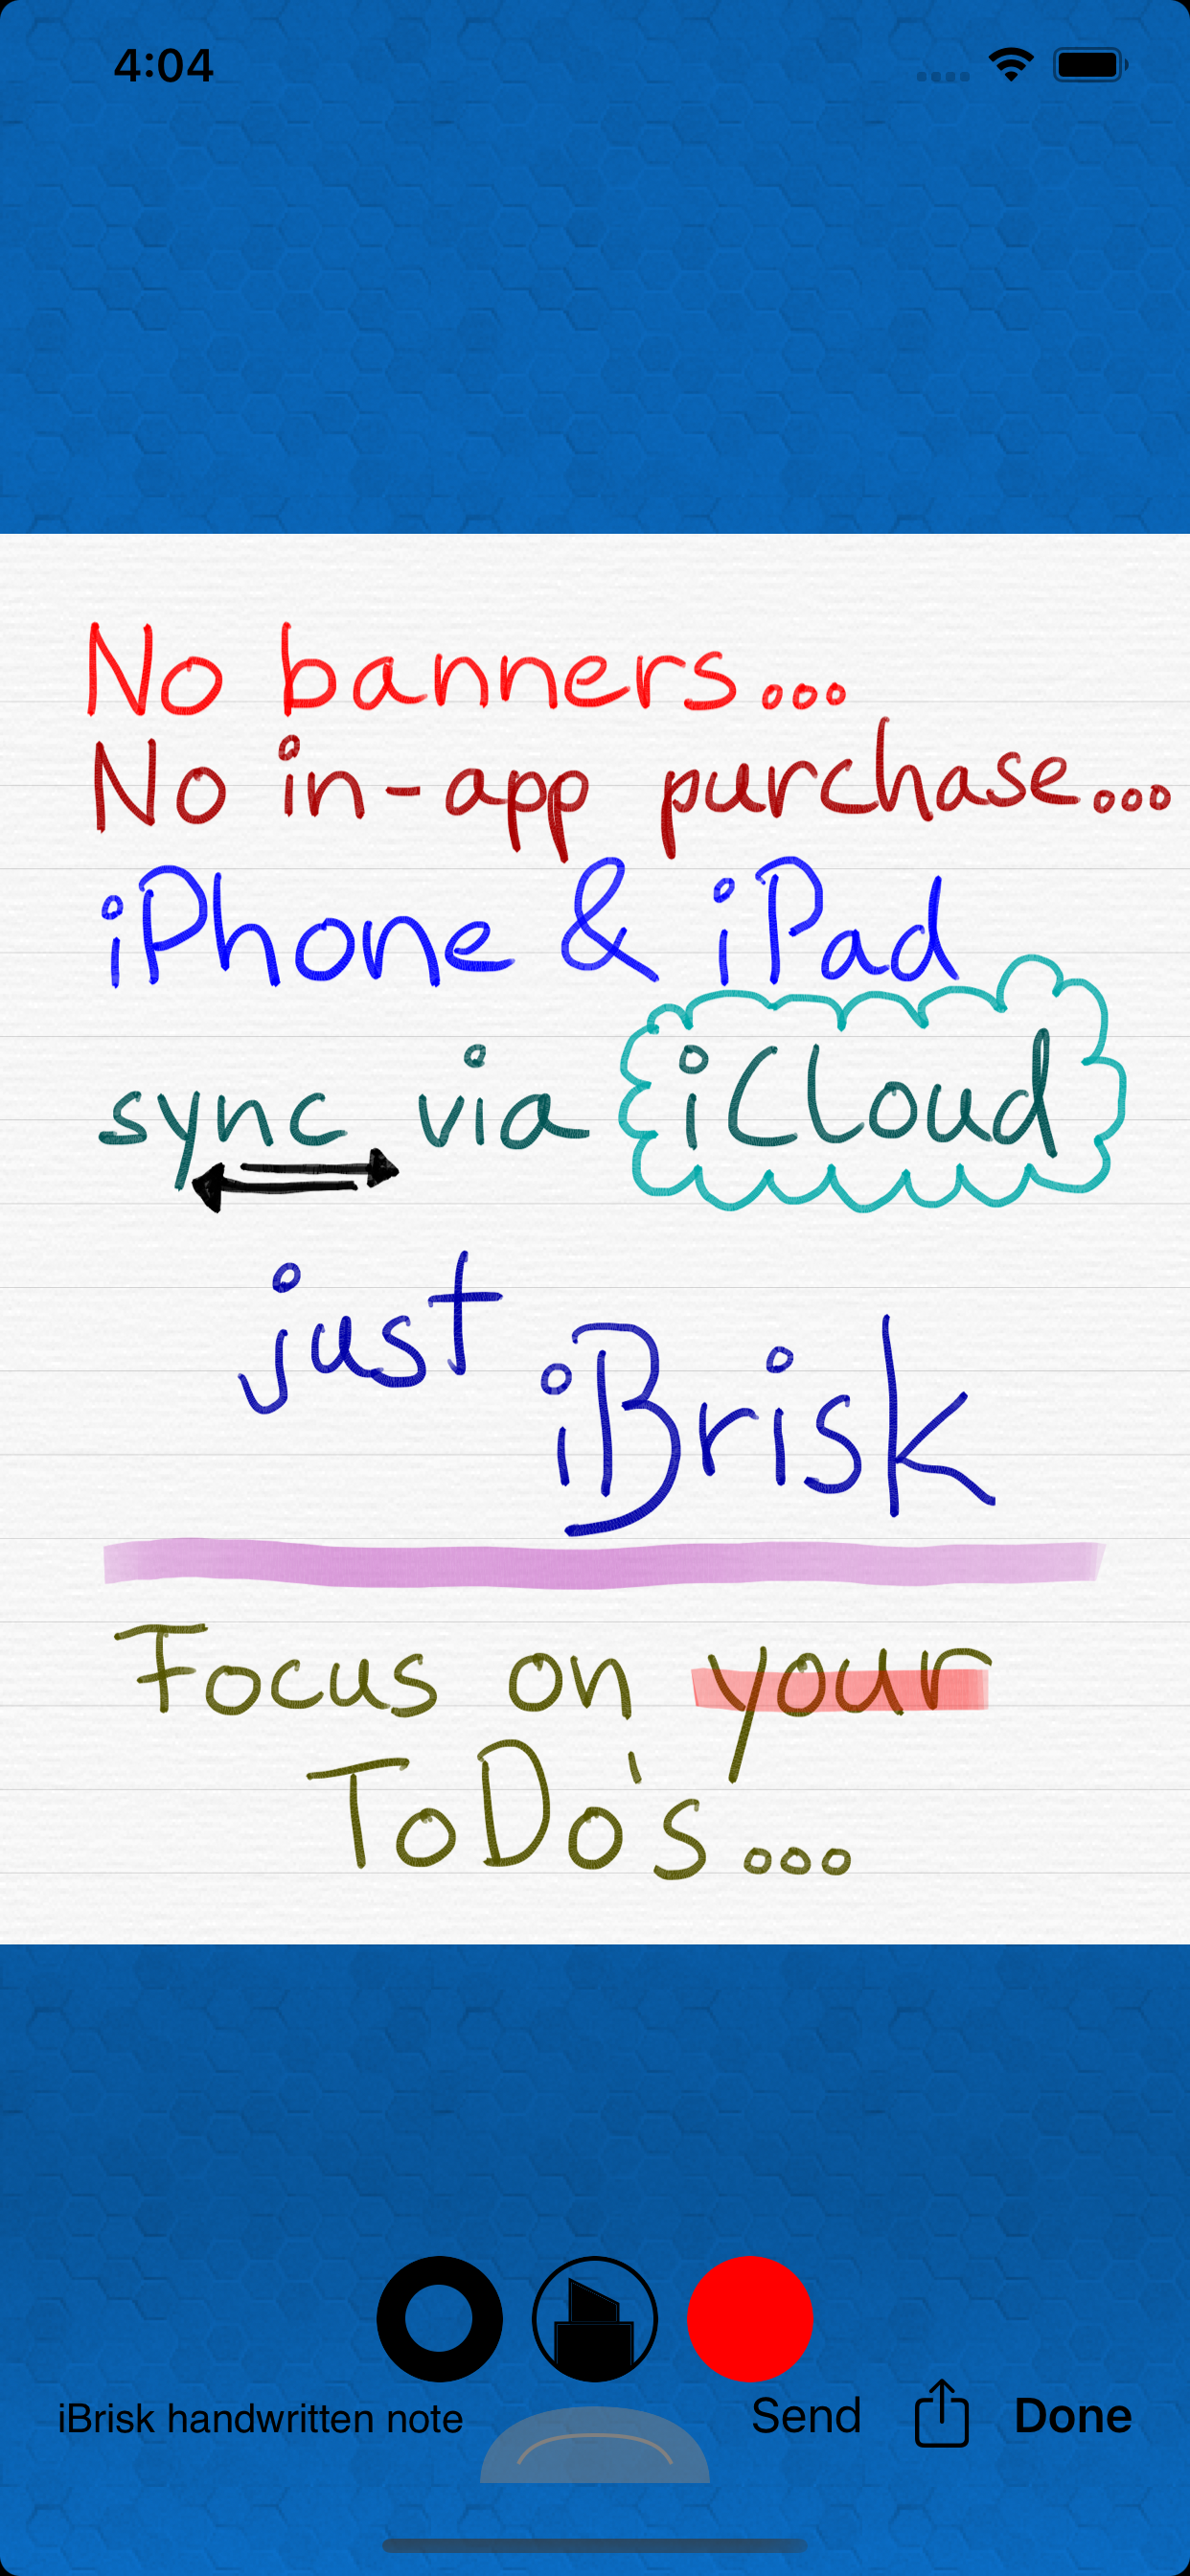 4:04
No banners...
No in-app purchase...
iPhone & iPad
sync via iCloud
just
iBrisk
Focus on your
ToDo's...
iBrisk handwritten note Send Done